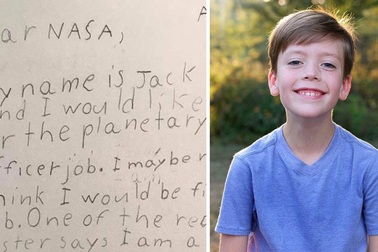 A
ar NASA,
y name is Jack
nd I would like
r the planetary
fficer job. I maybe
hink I would be fi
b. One of the re
ster says I am a